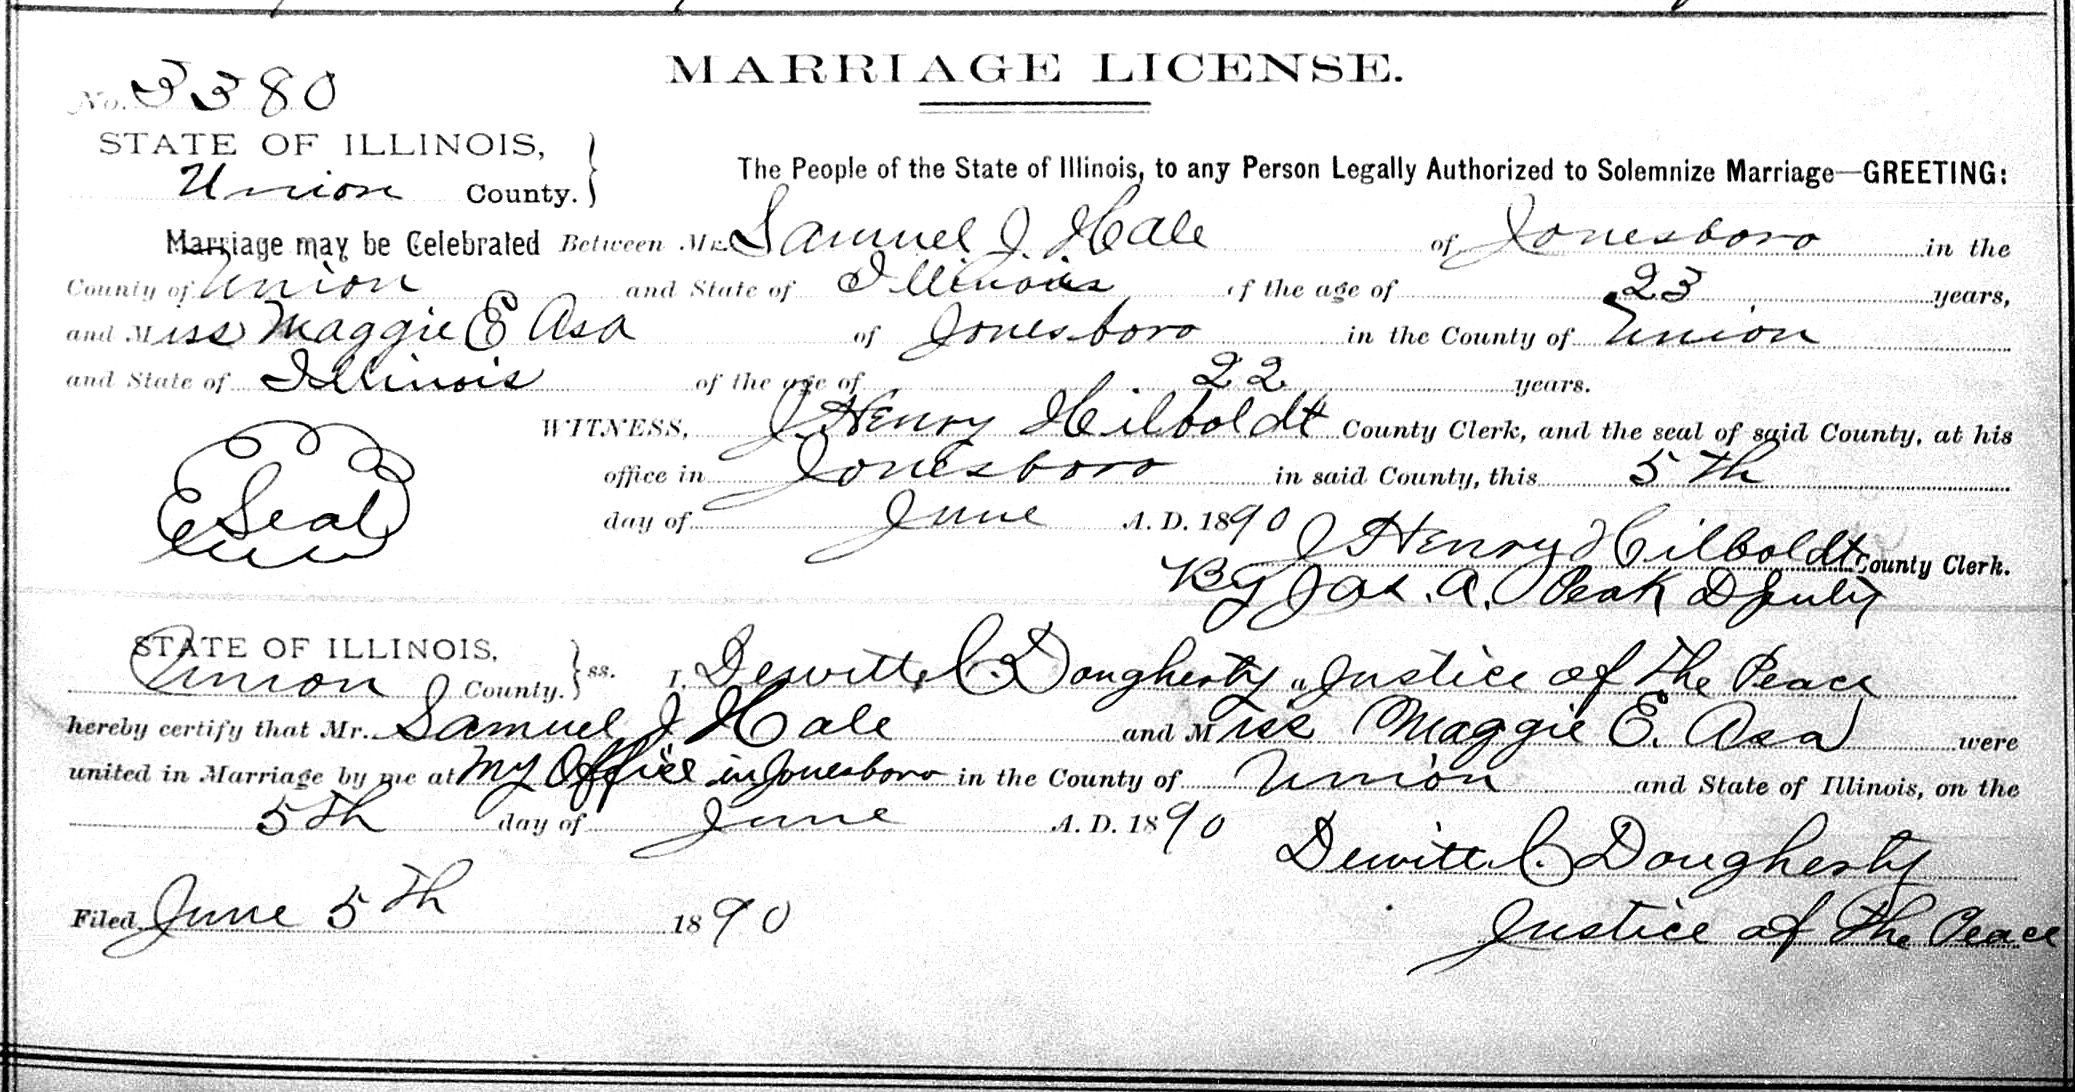 MARRIAGE LICENSE.
No. 3380
STATE OF ILLINOIS,
Union County.
The People of the State of Illinois, to any Person Legally Authorized to Solemnize Marriage—GREETING:
Marriage may be Celebrated Between Mr. Samuel J Hale of Jonesboro in the
County of Union and State of Illinois of the age of 23 years,
and Miss Maggie E Asa of Jonesboro in the County of Union
and State of Illinois of the age of 22 years.
WITNESS, J. Henry Hilboldt County Clerk, and the seal of said County, at his
office in Jonesboro in said County, this 5th
Seal
day of June A. D. 1890
J Henry Hilboldt County Clerk.
By Jas. A. Peak Deputy
STATE OF ILLINOIS,
Union County. ss. I, Dewitt C. Dougherty a Justice of the Peace
hereby certify that Mr. Samuel J Hale and Miss Maggie E. Asa were
united in Marriage by me at My Office in Jonesboro in the County of Union and State of Illinois, on the
5th day of June A. D. 1890
Dewitt C. Dougherty
Filed June 5th 1890
Justice of the Peace